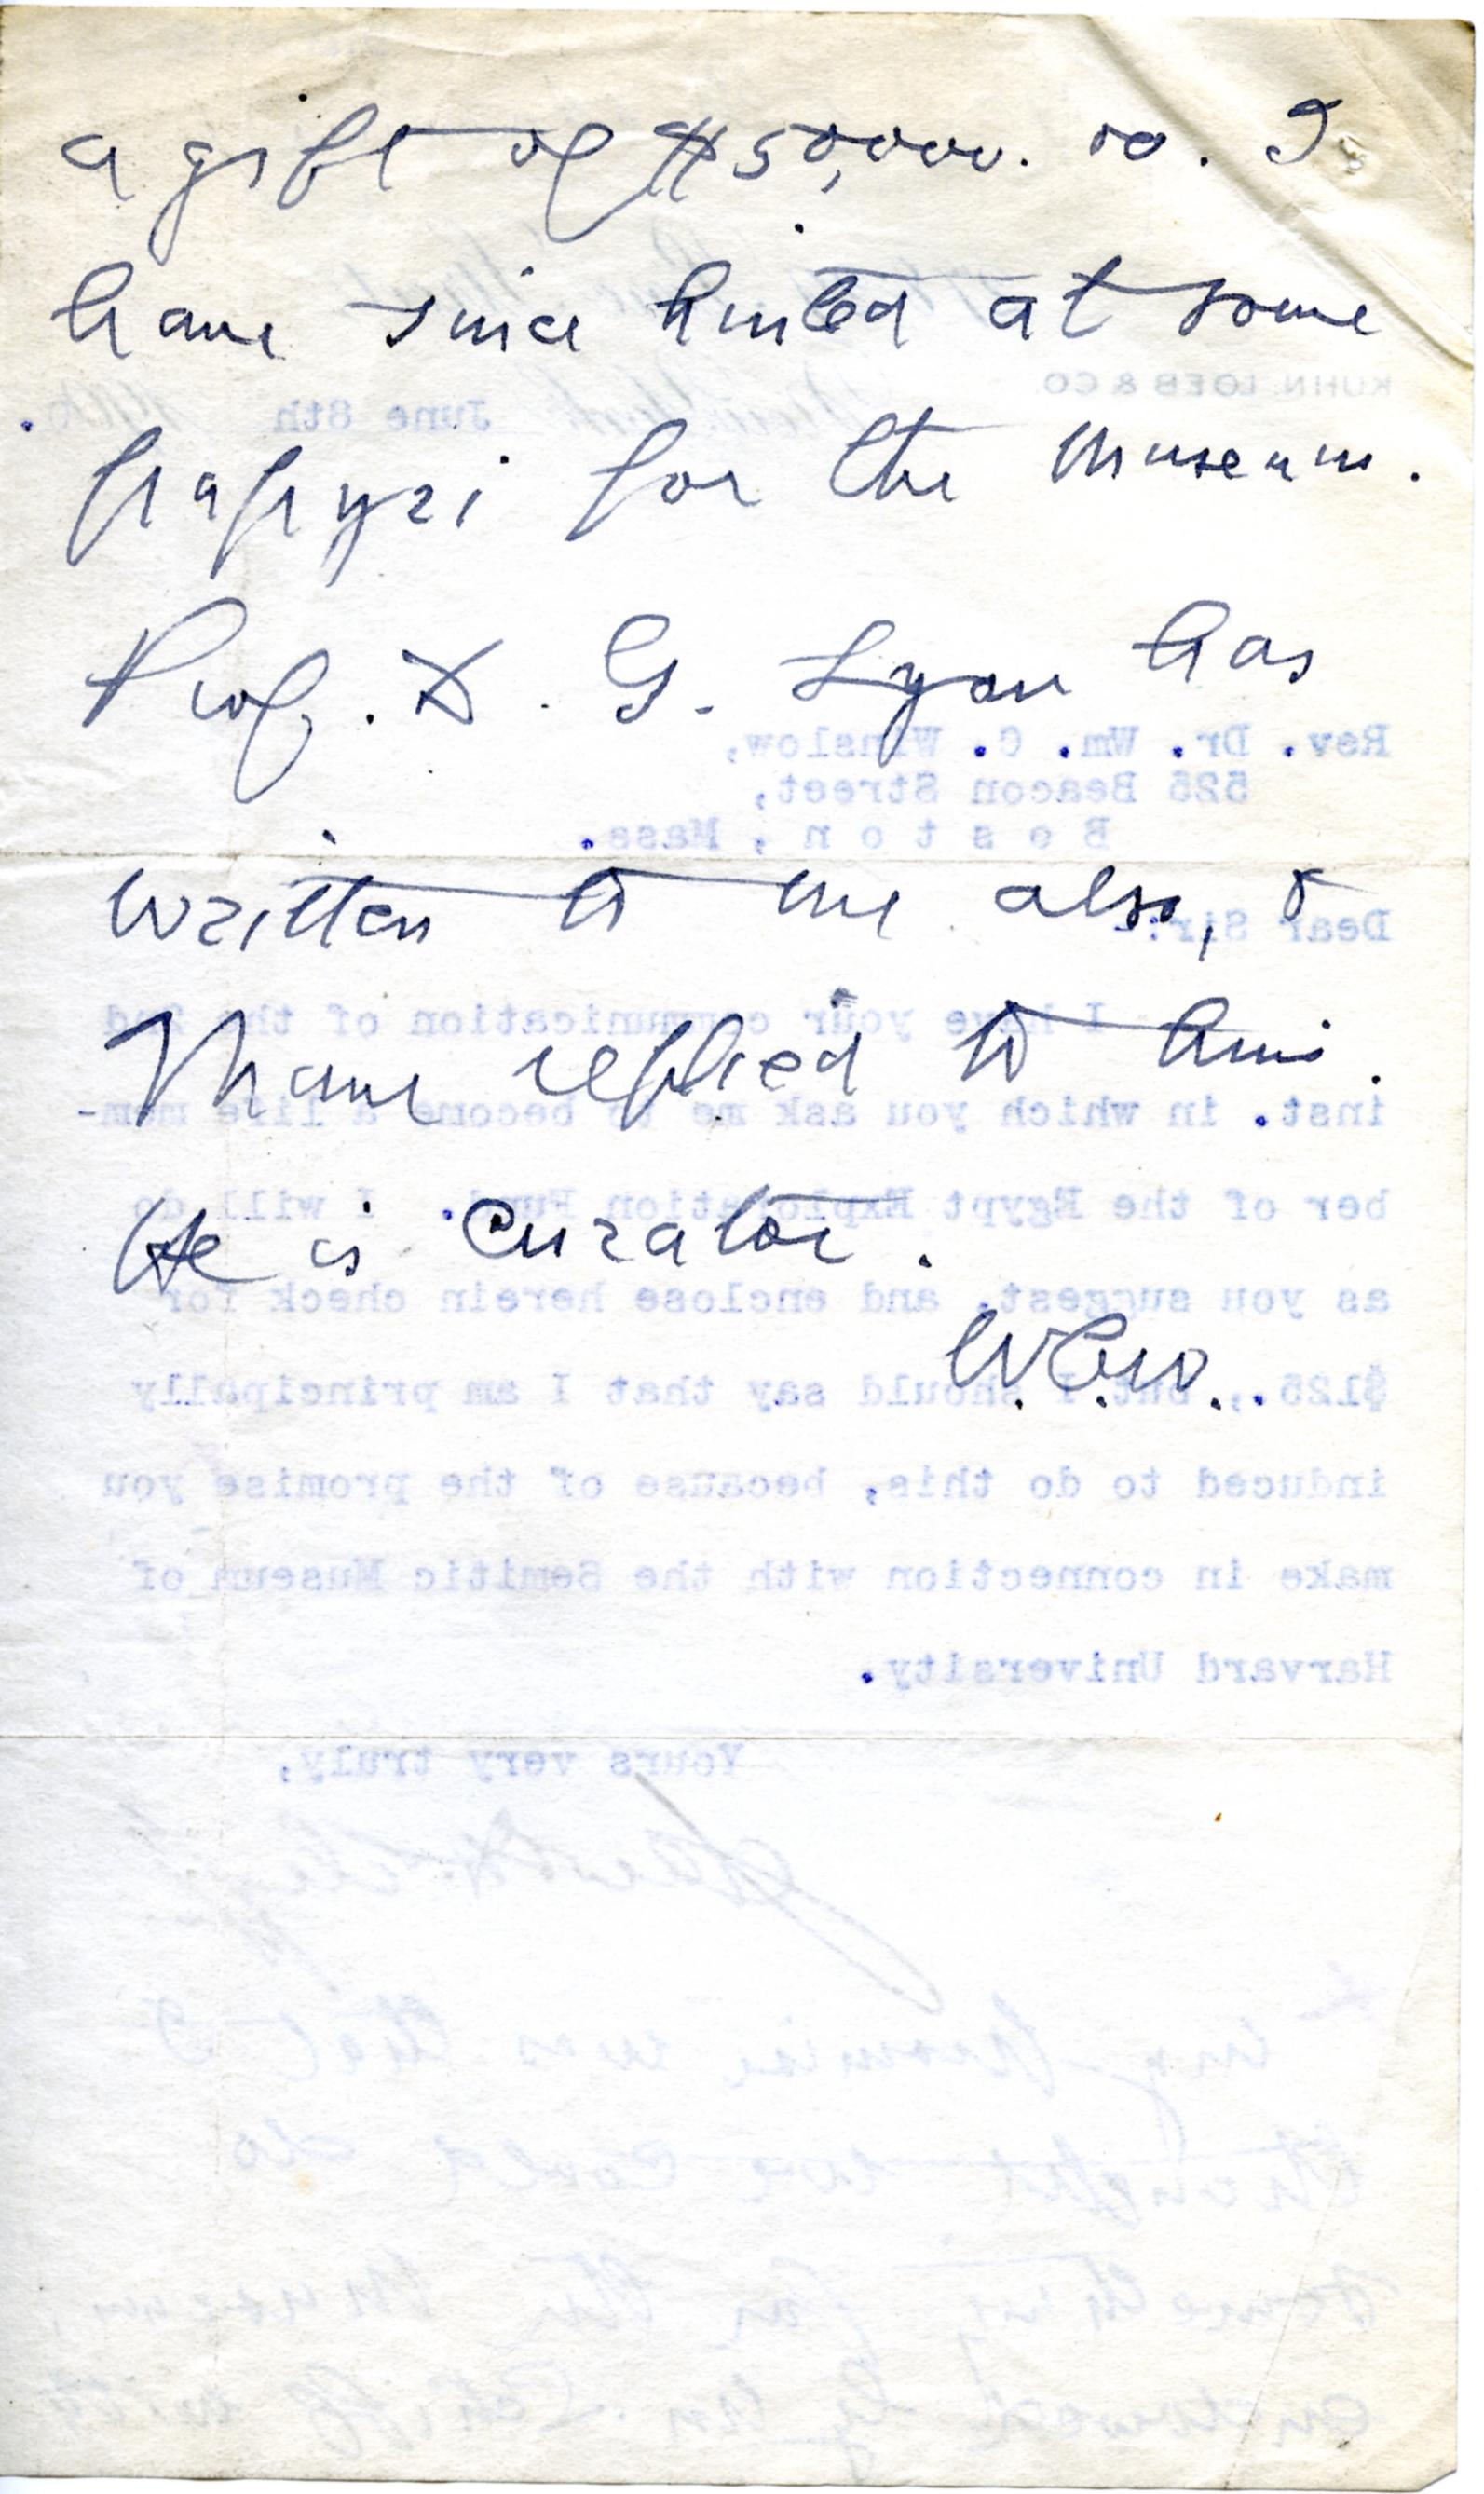 a gift of $50,000.00. I
have since hinted at some
papyri for the Museum.
Prof. D. G. Lyon has
written to me also, &
I have replied to him.
He is Curator.
W.C.W.